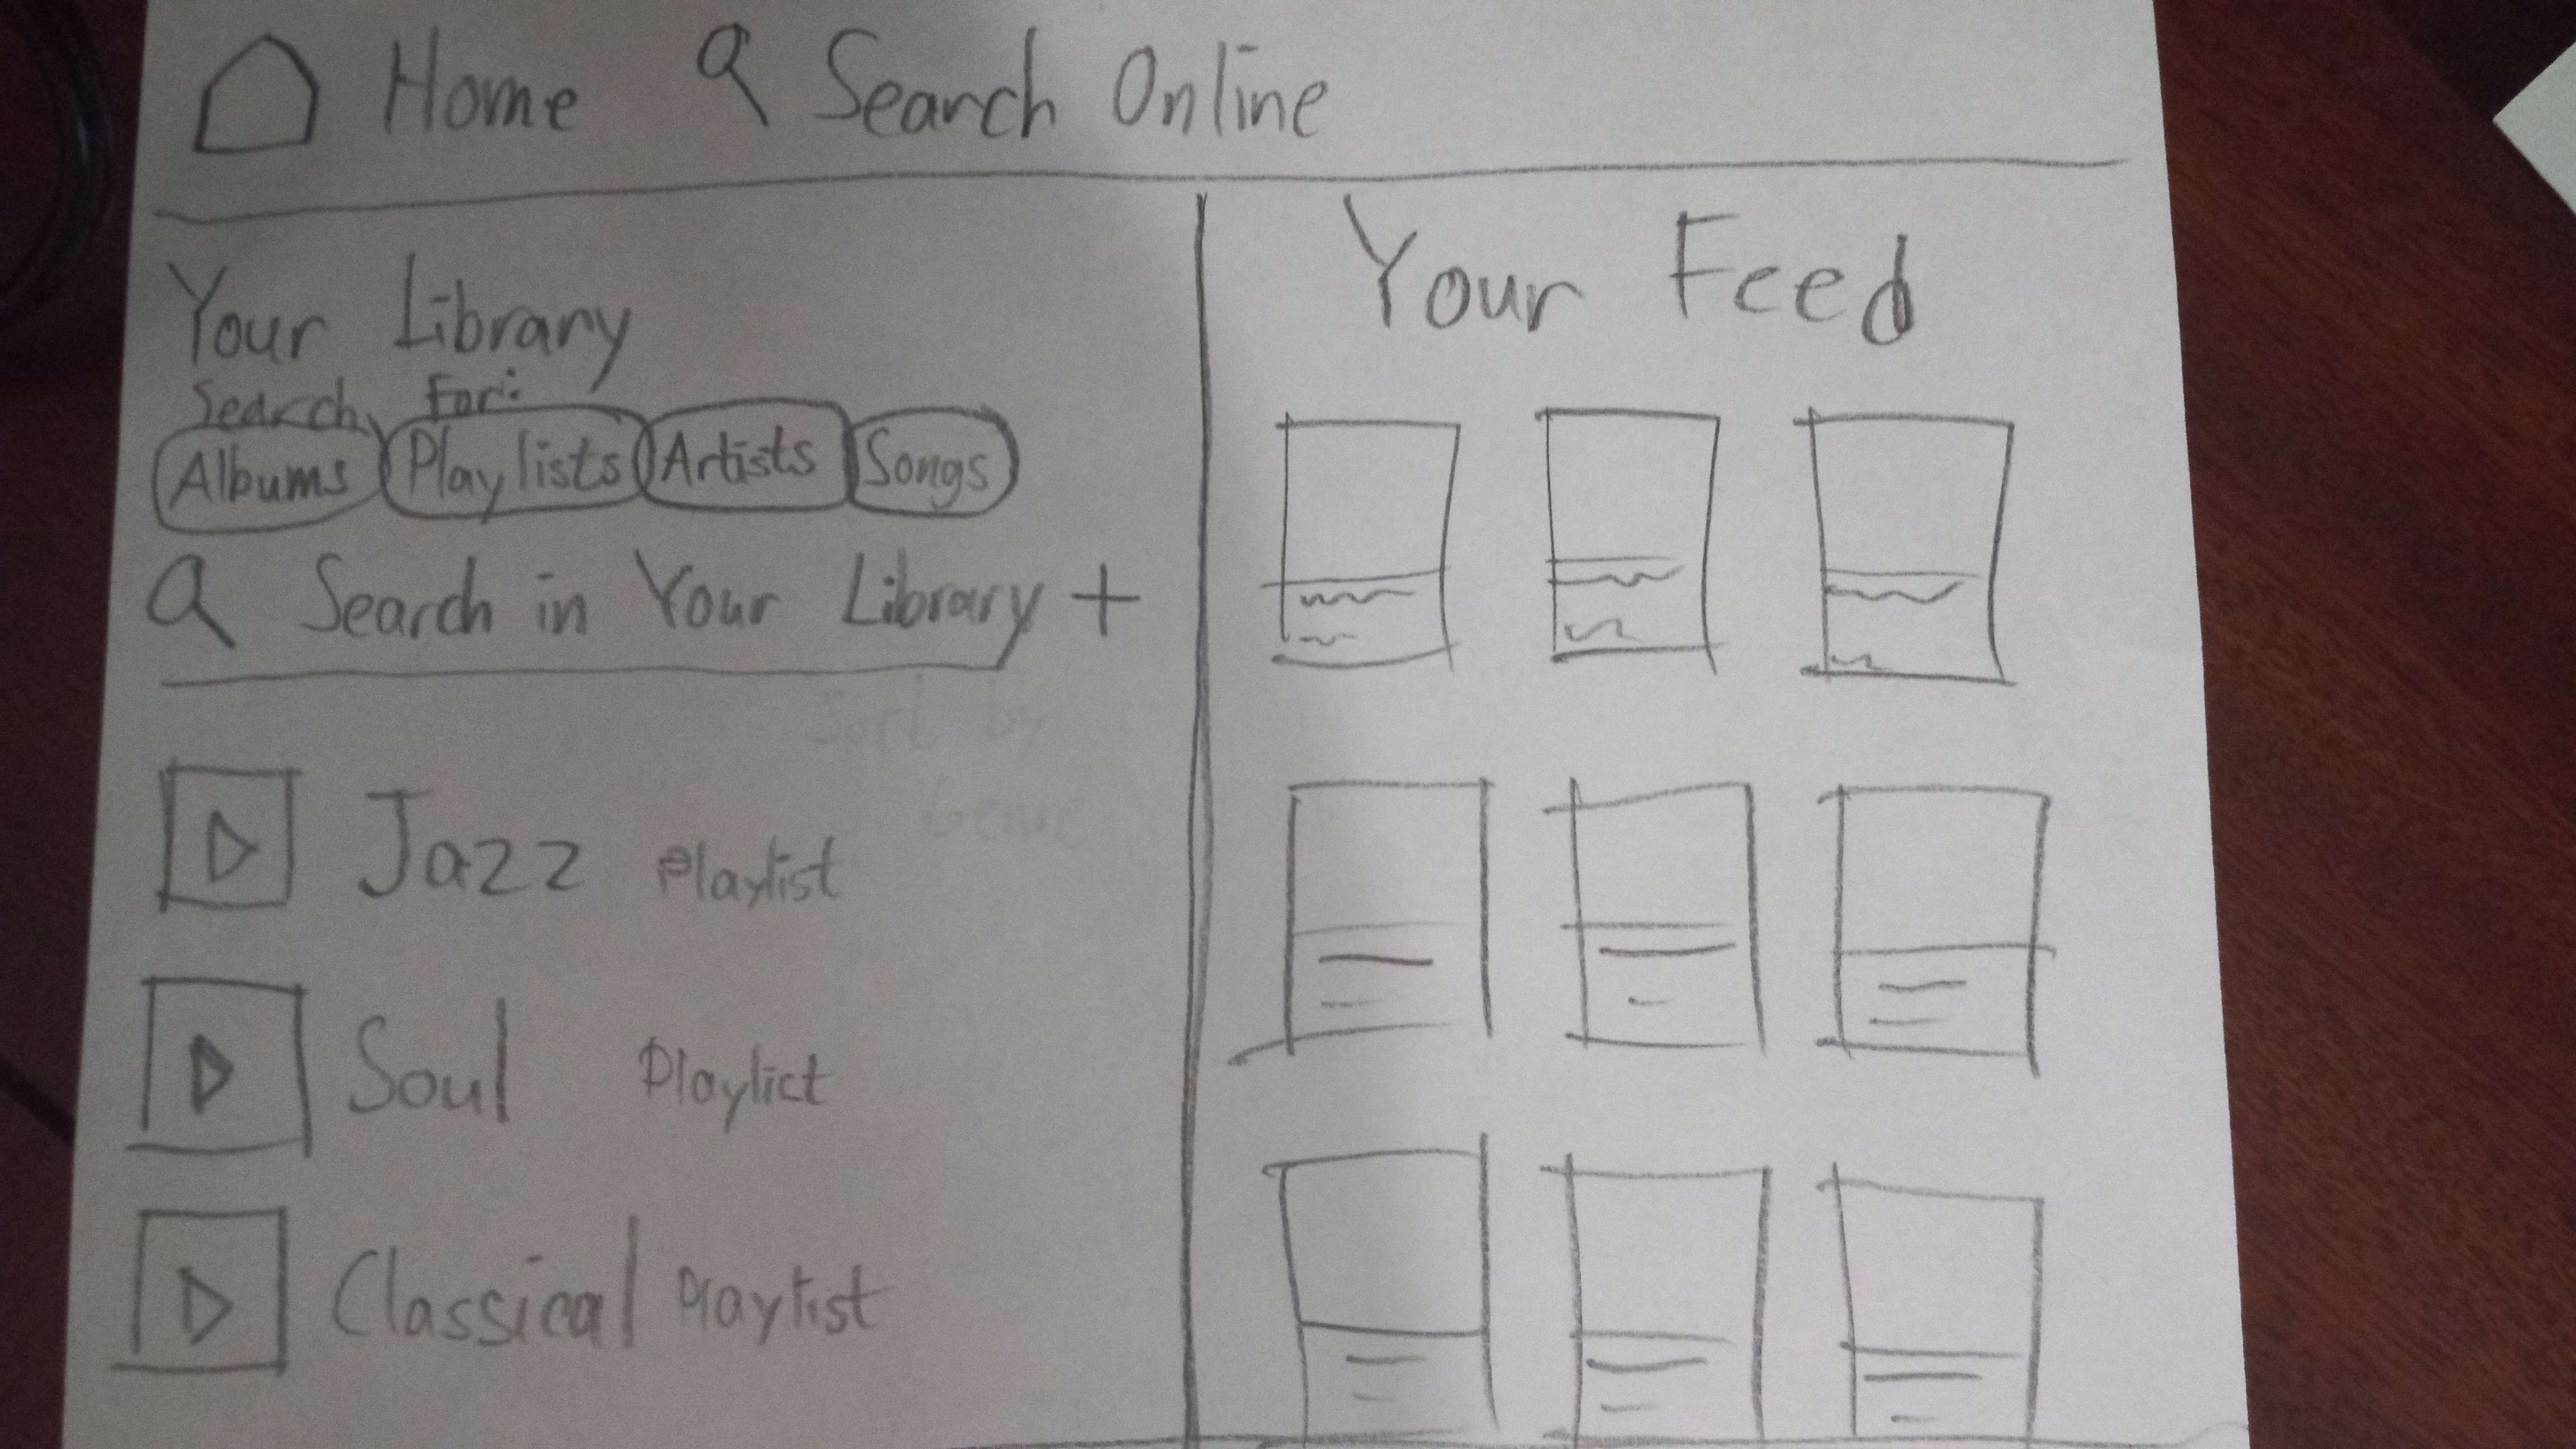 Home Search Online
Your Library
Search For:
Albums Playlists Artists Songs
Search in Your Library +
Sort by
Genre
Jazz Playlist
Soul Playlict
Classical Playlist
Your Feed